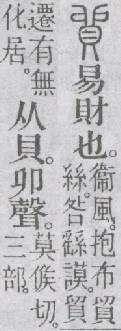 貿易財也。衞風。抱布貿絲。咎繇謨。貿
遷有無化居。从貝。卯聲。莫候切。三部。